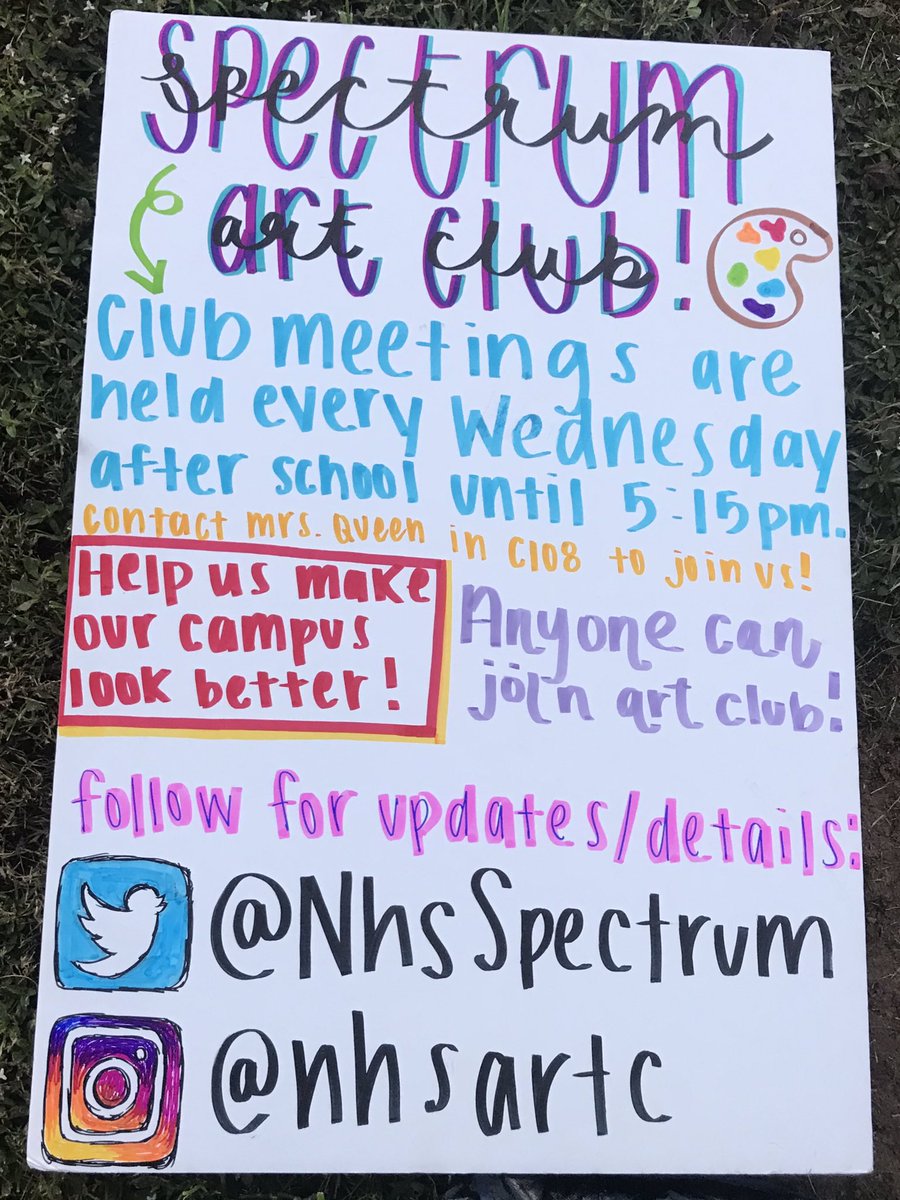 spectrum
art club!
Club meetings are
held every Wednesday
after school until 5:15pm.
contact mrs. Queen in C108 to join us!
Help us make
our campus
look better!
Anyone can
join art club!
follow for updates/details:
@NhsSpectrum
@nhsartc